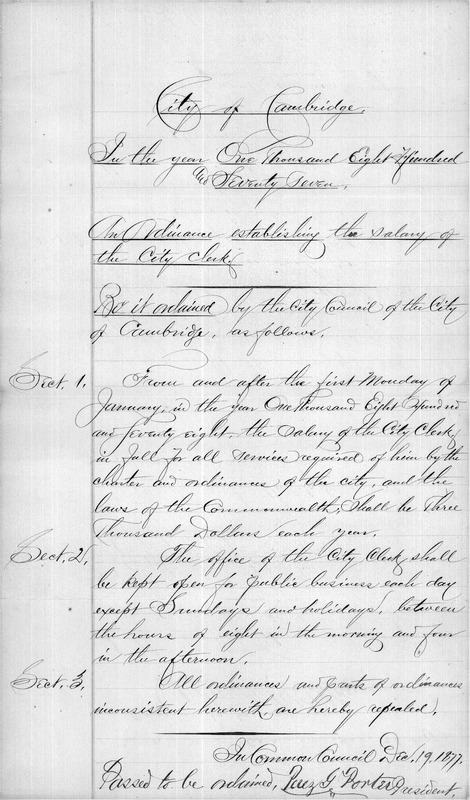 City of Cambridge.
In the year One Thousand Eight Hundred
and Seventy Seven.
An Ordinance establishing the salary of
the City Clerk
Be it ordained by the City Council of the City
of Cambridge, as follows.
Sect. 1. From and after the first Monday of
January, in the year One Thousand Eight Hundred
and Seventy eight, the salary of the City Clerk
in full for all services required of him by the
charter and ordinances of the city, and the
laws of the Commonwealth, shall be Three
Thousand Dollars each year.
Sect. 2. The office of the City Clerk shall
be kept open for public business each day
except Sundays and holidays, between
the hours of eight in the morning and four
in the afternoon.
Sect. 3. All ordinances and parts of ordinances
inconsistent herewith, are hereby repealed.
In Common Council Dec. 19. 1877.
Passed to be ordained, Perez G. Porter President.